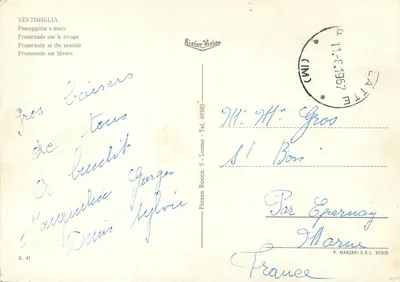 VENTIMIGLIA
Passeggiata a mare
Promenade sur le rivage
Promenade at the seaside
Promenade am Meere
LATTE
11-8.1967
(IM)
Gros baisers
de tous
à bientôt
Jacqueline Georges
Denis Sylvie
Piazzan Rocca, 5 - Loano - Tel. 69385
Mr Mme Gros
St Bon
Par Epernay
Marne
France
X. 41
P. MARZARI S.R.L. SCHIO